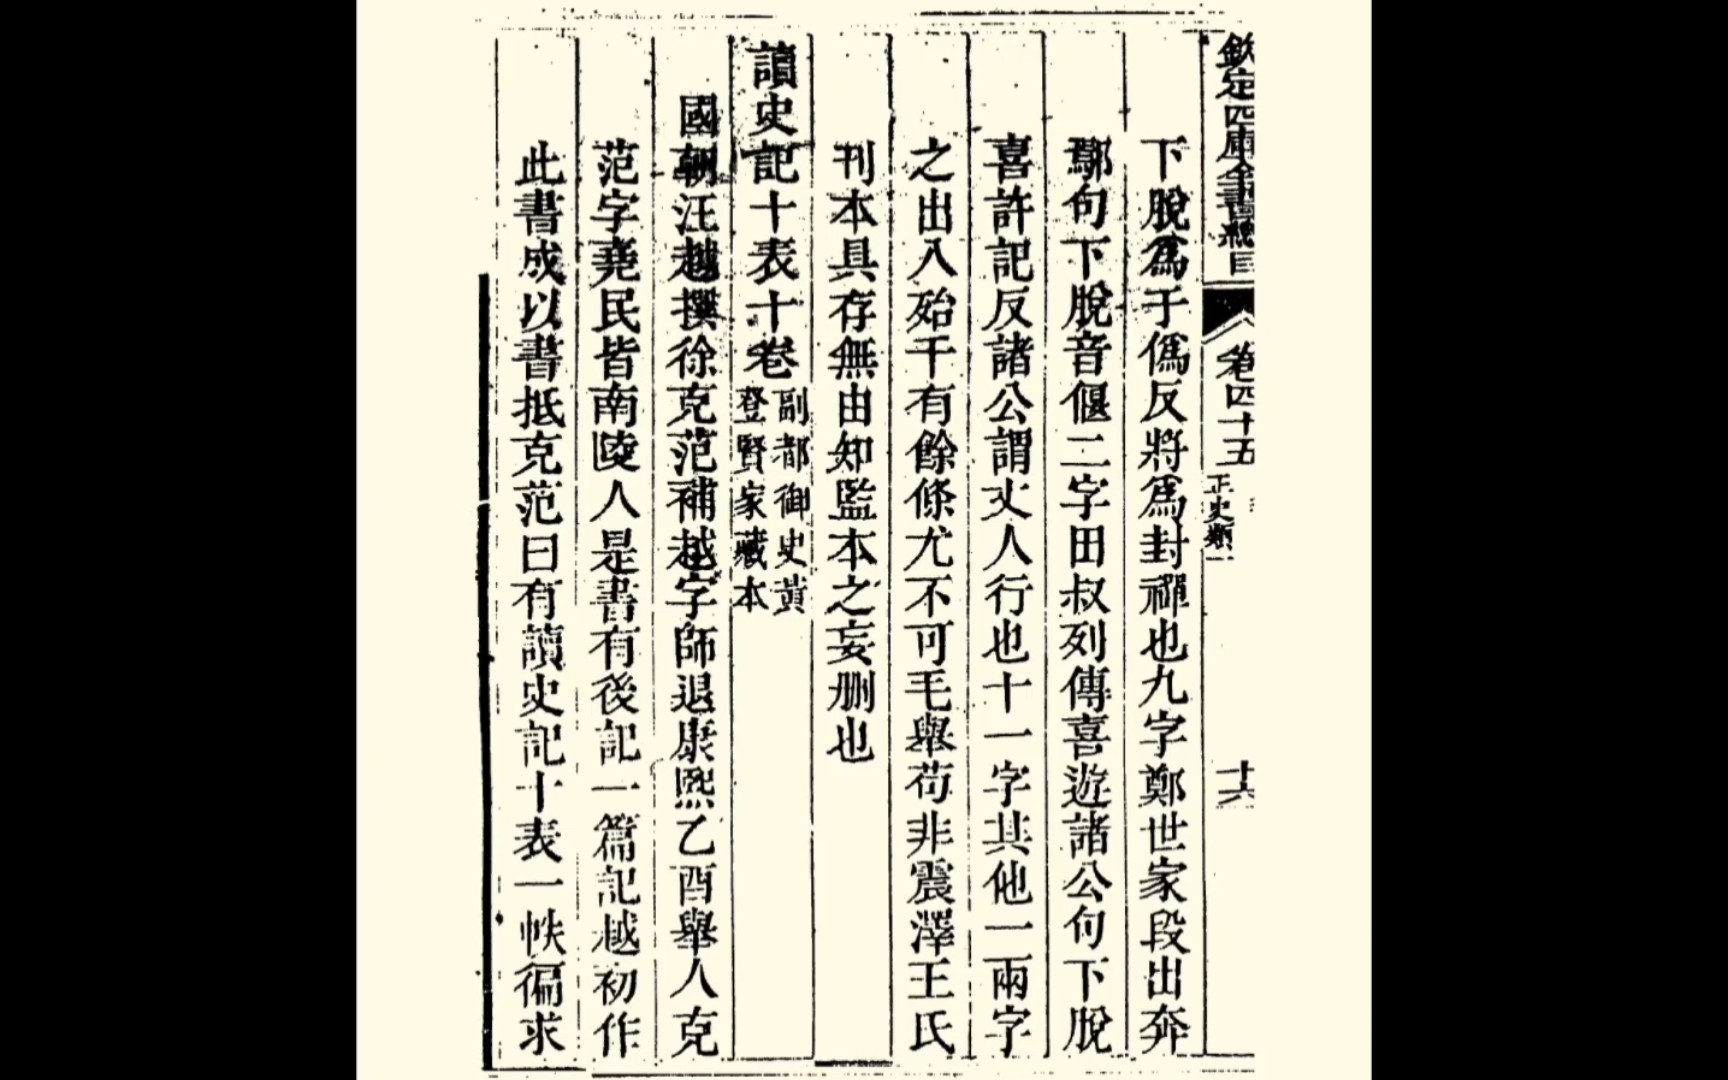 欽定四庫全書總目 卷四十五 正史類一 十六
下脫爲于僞反將爲封禪也九字鄭世家段出奔
鄢句下脫音偃二字田叔列傳喜遊諸公句下脫
喜許記反諸公謂丈人行也十一字其他一兩字
之出入殆千有餘條尤不可毛舉苟非震澤王氏
刊本具存無由知監本之妄刪也
讀史記十表十卷 副都御史黃登賢家藏本
國朝汪越撰徐克范補越字師退康熙乙酉舉人克
范字堯民皆南陵人是書有後記一篇記越初作
此書成以書抵克范曰有讀史記十表一帙徧求